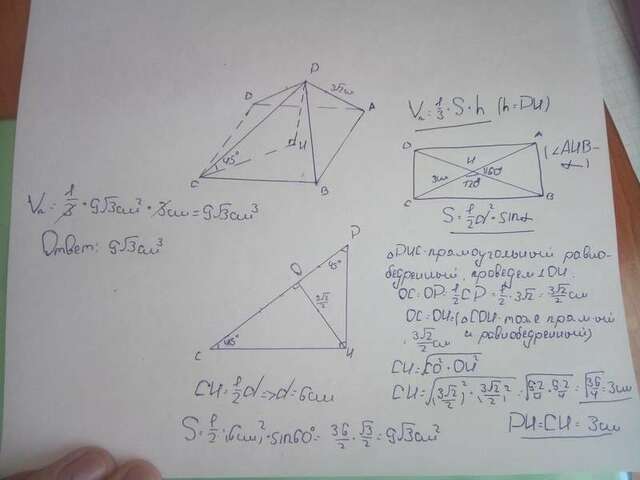 P
3√2см
D
A
H
45°
C
B
Vп = 1/3 · S · h (h = PH)
D
A
H
3см
60°
120°
C
B
(∠AHB - α)
S = 1/2 d² · sin α
Vп = 1/3 · 9√3см² · 3см = 9√3см³
Ответ: 9√3см³
P
45°
O
3√2/2
45°
C
H
△PHC-прямоугольный равно-
бедренный, проведем ⊥OH.
OC = OP = 1/2 CP = 1/2 · 3√2 = 3√2/2 см
OC = OH = (△COH тоже прямой
3√2/2 см и равнобедренный)
CH = √CO² · OH²
CH = √(3√2/2)² · (3√2/2)² = √9·2/4 · 9·2/4 = √36/4 = 3см
PH = CH = 3см
CH = 1/2 d => d = 6см
S = 1/2 · (6см)² · sin60° = 36/2 · √3/2 = 9√3см²